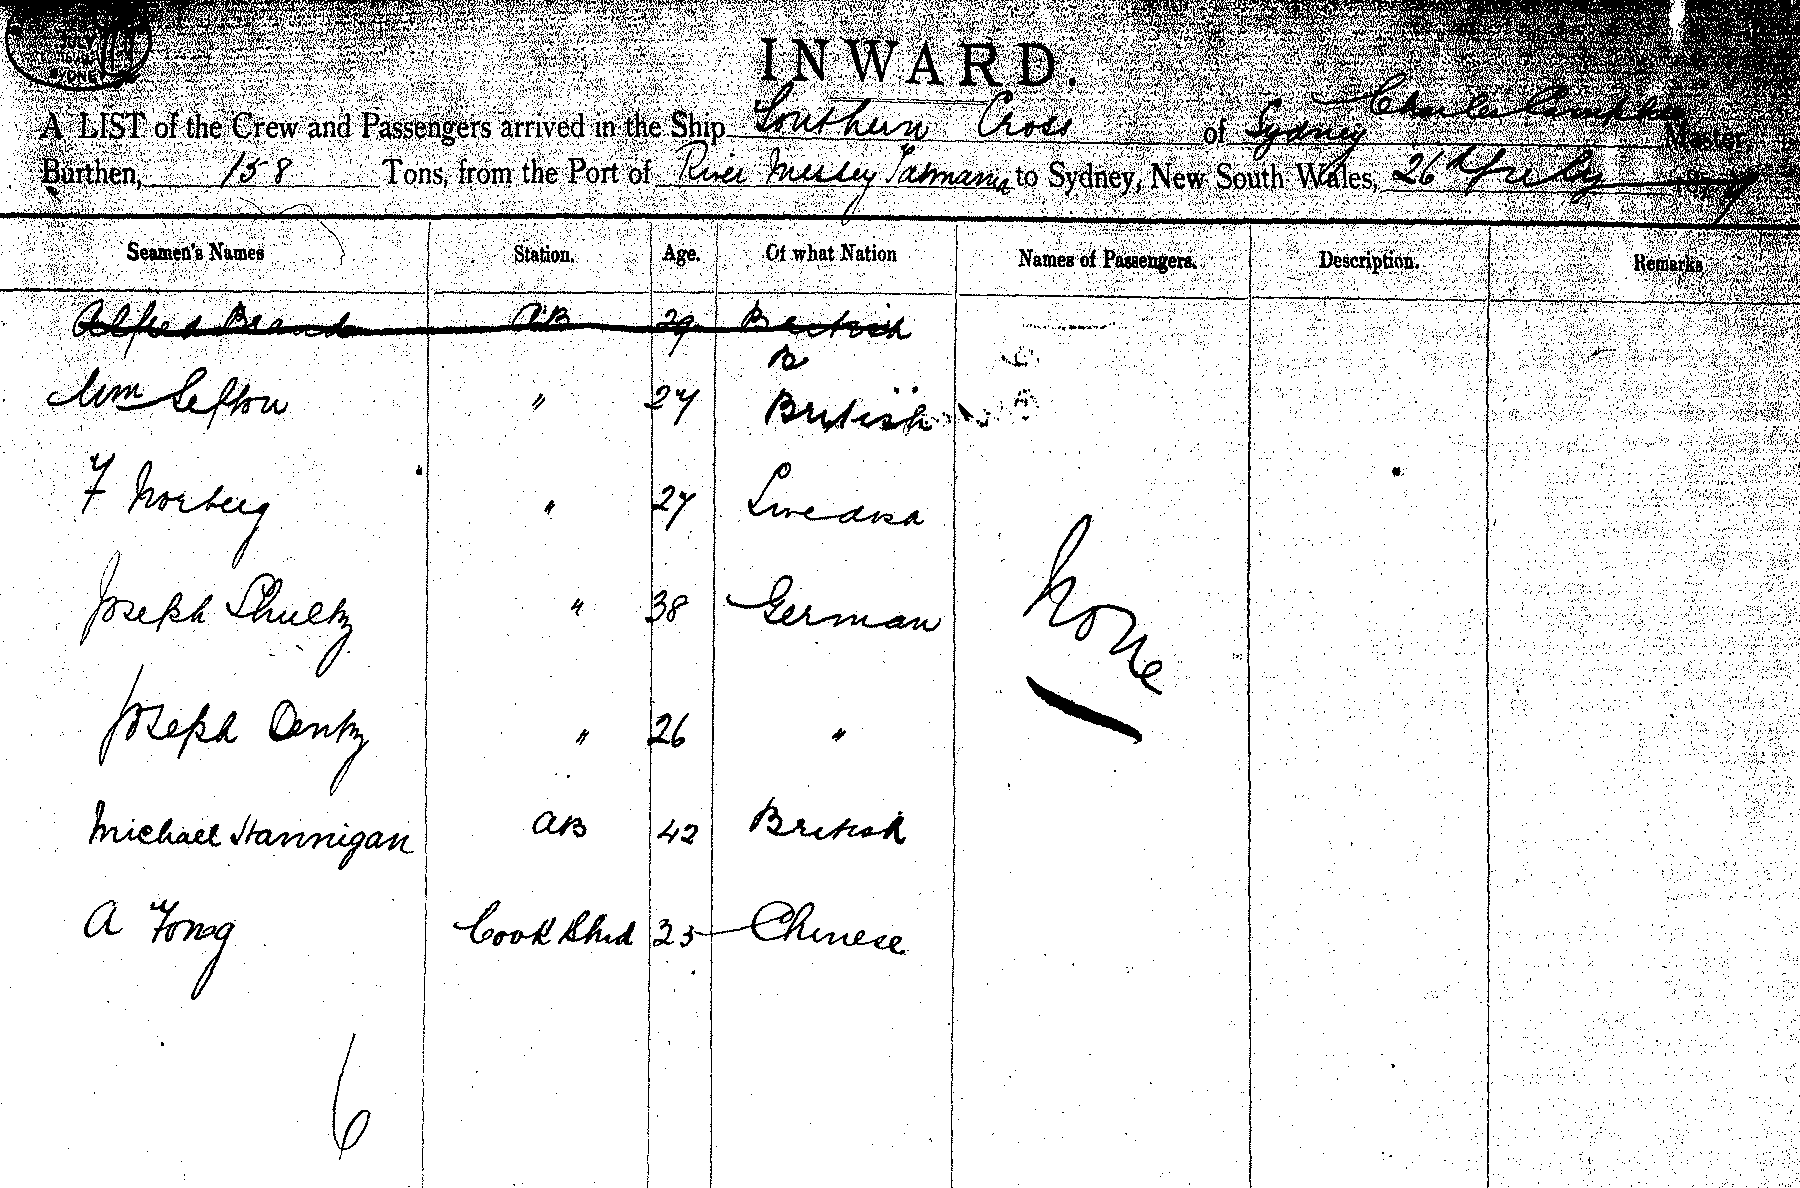 SYDNEY
INWARD.
Charles
A LIST of the Crew and Passengers arrived in the Ship Southern Cross of Sydney Master
Burthen, 158 Tons, from the Port of River Mersey Tasmania to Sydney, New South Wales, 26th
Seamen's Names Station. Age. Of what Nation Names of Passengers. Description. Remarks
Alfred Brand AB 29 British
B
Wm Sefton " 27 British
F Norberg " 27 Swedish
Joseph Shultz " 38 German
None
Joseph Dentz " 26 "
Michael Hannigan AB 42 British
A Fong Cook & Shd 25 Chinese
6